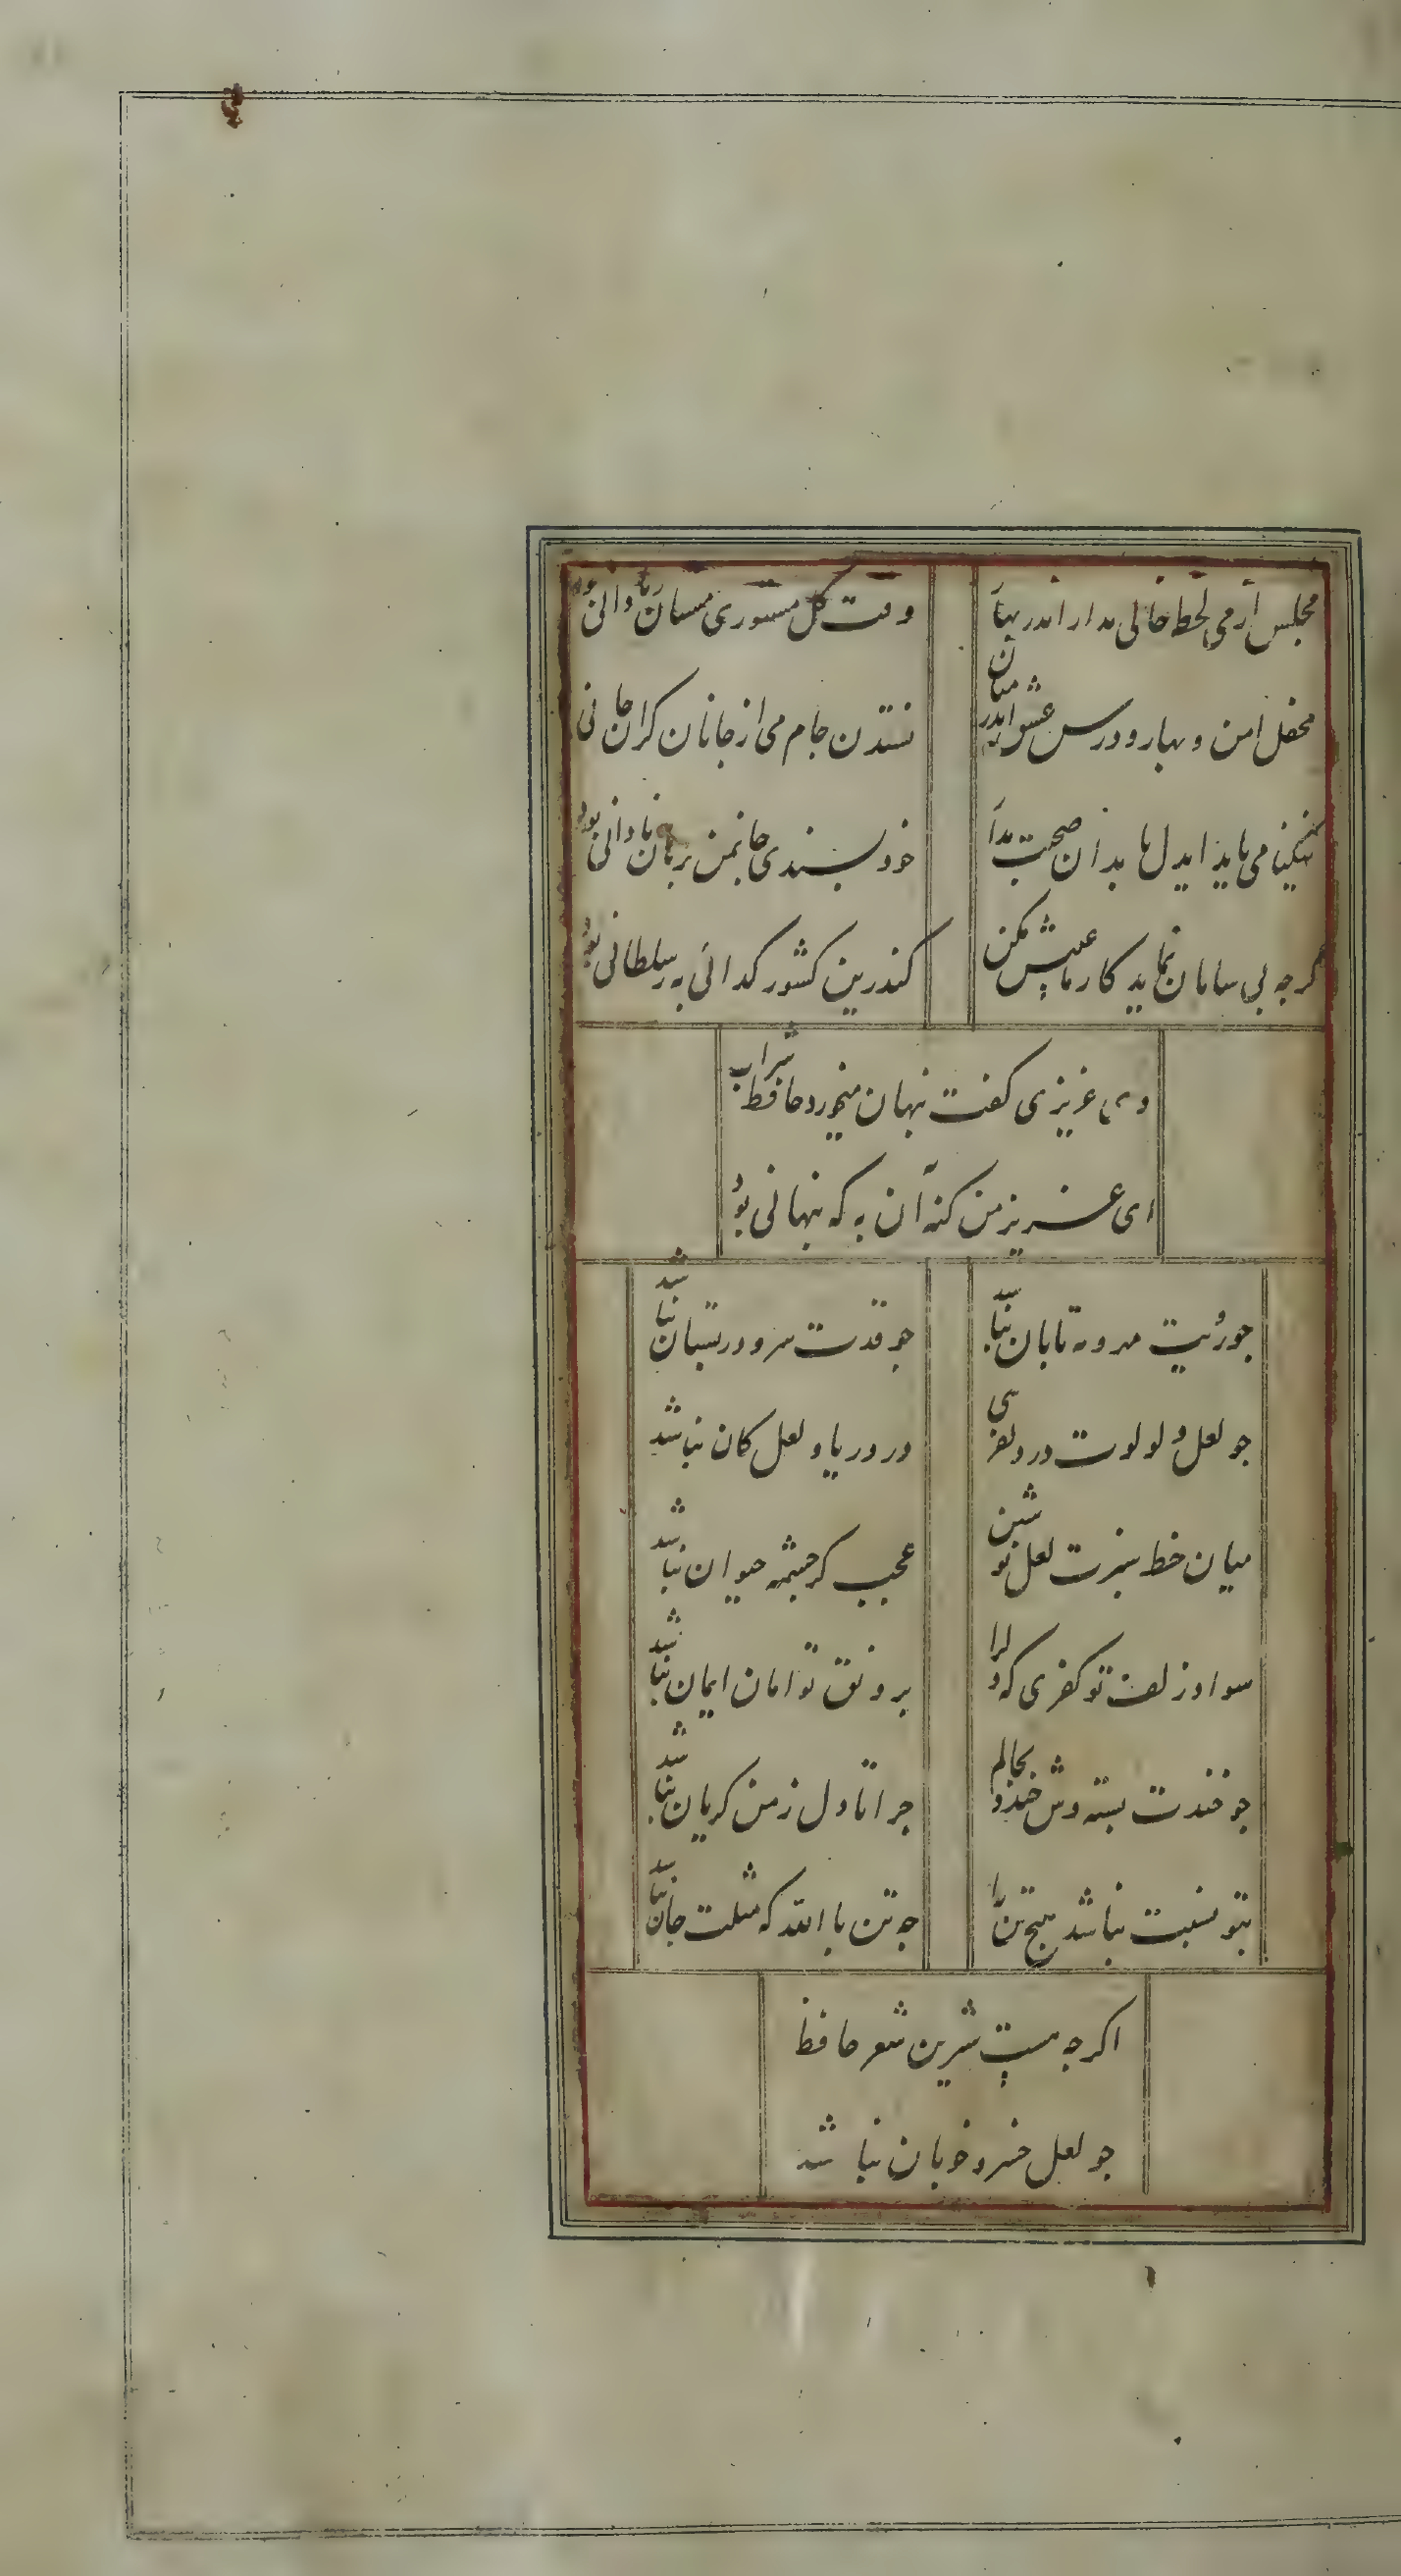 مجلس از می لحظ خالی مدار اندر بهار
وقت گل مستوری مستان نادانی بود
محفل امن و بهار و درس عشق اندر میان
نستدن جام می از جانان گران جانی بود
نیکنامی باید ایدل با بدان صحبت مدار
خود پسندی جان من برهان نادانی بود
گرچه بی سامان نماید کار ما عیبش مکن
کندرین کشور گدائی به ز سلطانی بود
دی عزیزی گفت پنهان میخورد حافظ شراب
ای عزیز من گنه آن به که پنهانی بود
چو رویت مهر و مه تابان نباشد
چو قدت سرو در بستان نباشد
چو لعل و لولوت در دلفریبی
در دریا و لعل کان نباشد
میان خط سبزت لعل نوشین
عجب گر چشمه حیوان نباشد
سواد زلف تو کفری که دارد
بر ونق تو امان ایمان نباشد
چو خندت پسته وش خندد بحالم
چرا تا دل ز من گریان نباشد
بتو نسبت نباشد هیچ تن را
چه تن باالله که مثلت جان نباشد
اگر چه هست شیرین شعر حافظ
چو لعل خسرو خوبان نباشد